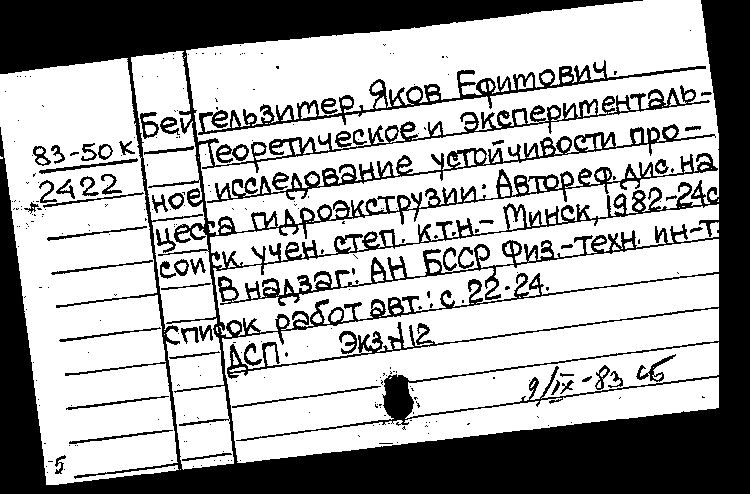 Бейгельзимер, Яков Ефимович.
83-50 к
2422
Теоретическое и эксперименталь-
ное исследование устойчивости про-
цесса гидроэкструзии: Автореф. дис. на
соиск. учен. степ. к.т.н.- Минск, 1982.-24с
В надзаг.: АН БССР, Физ.-техн. ин-т.
Список работ авт.: с.22-24.
ДСП. Экз.N12
9/IX-83
5